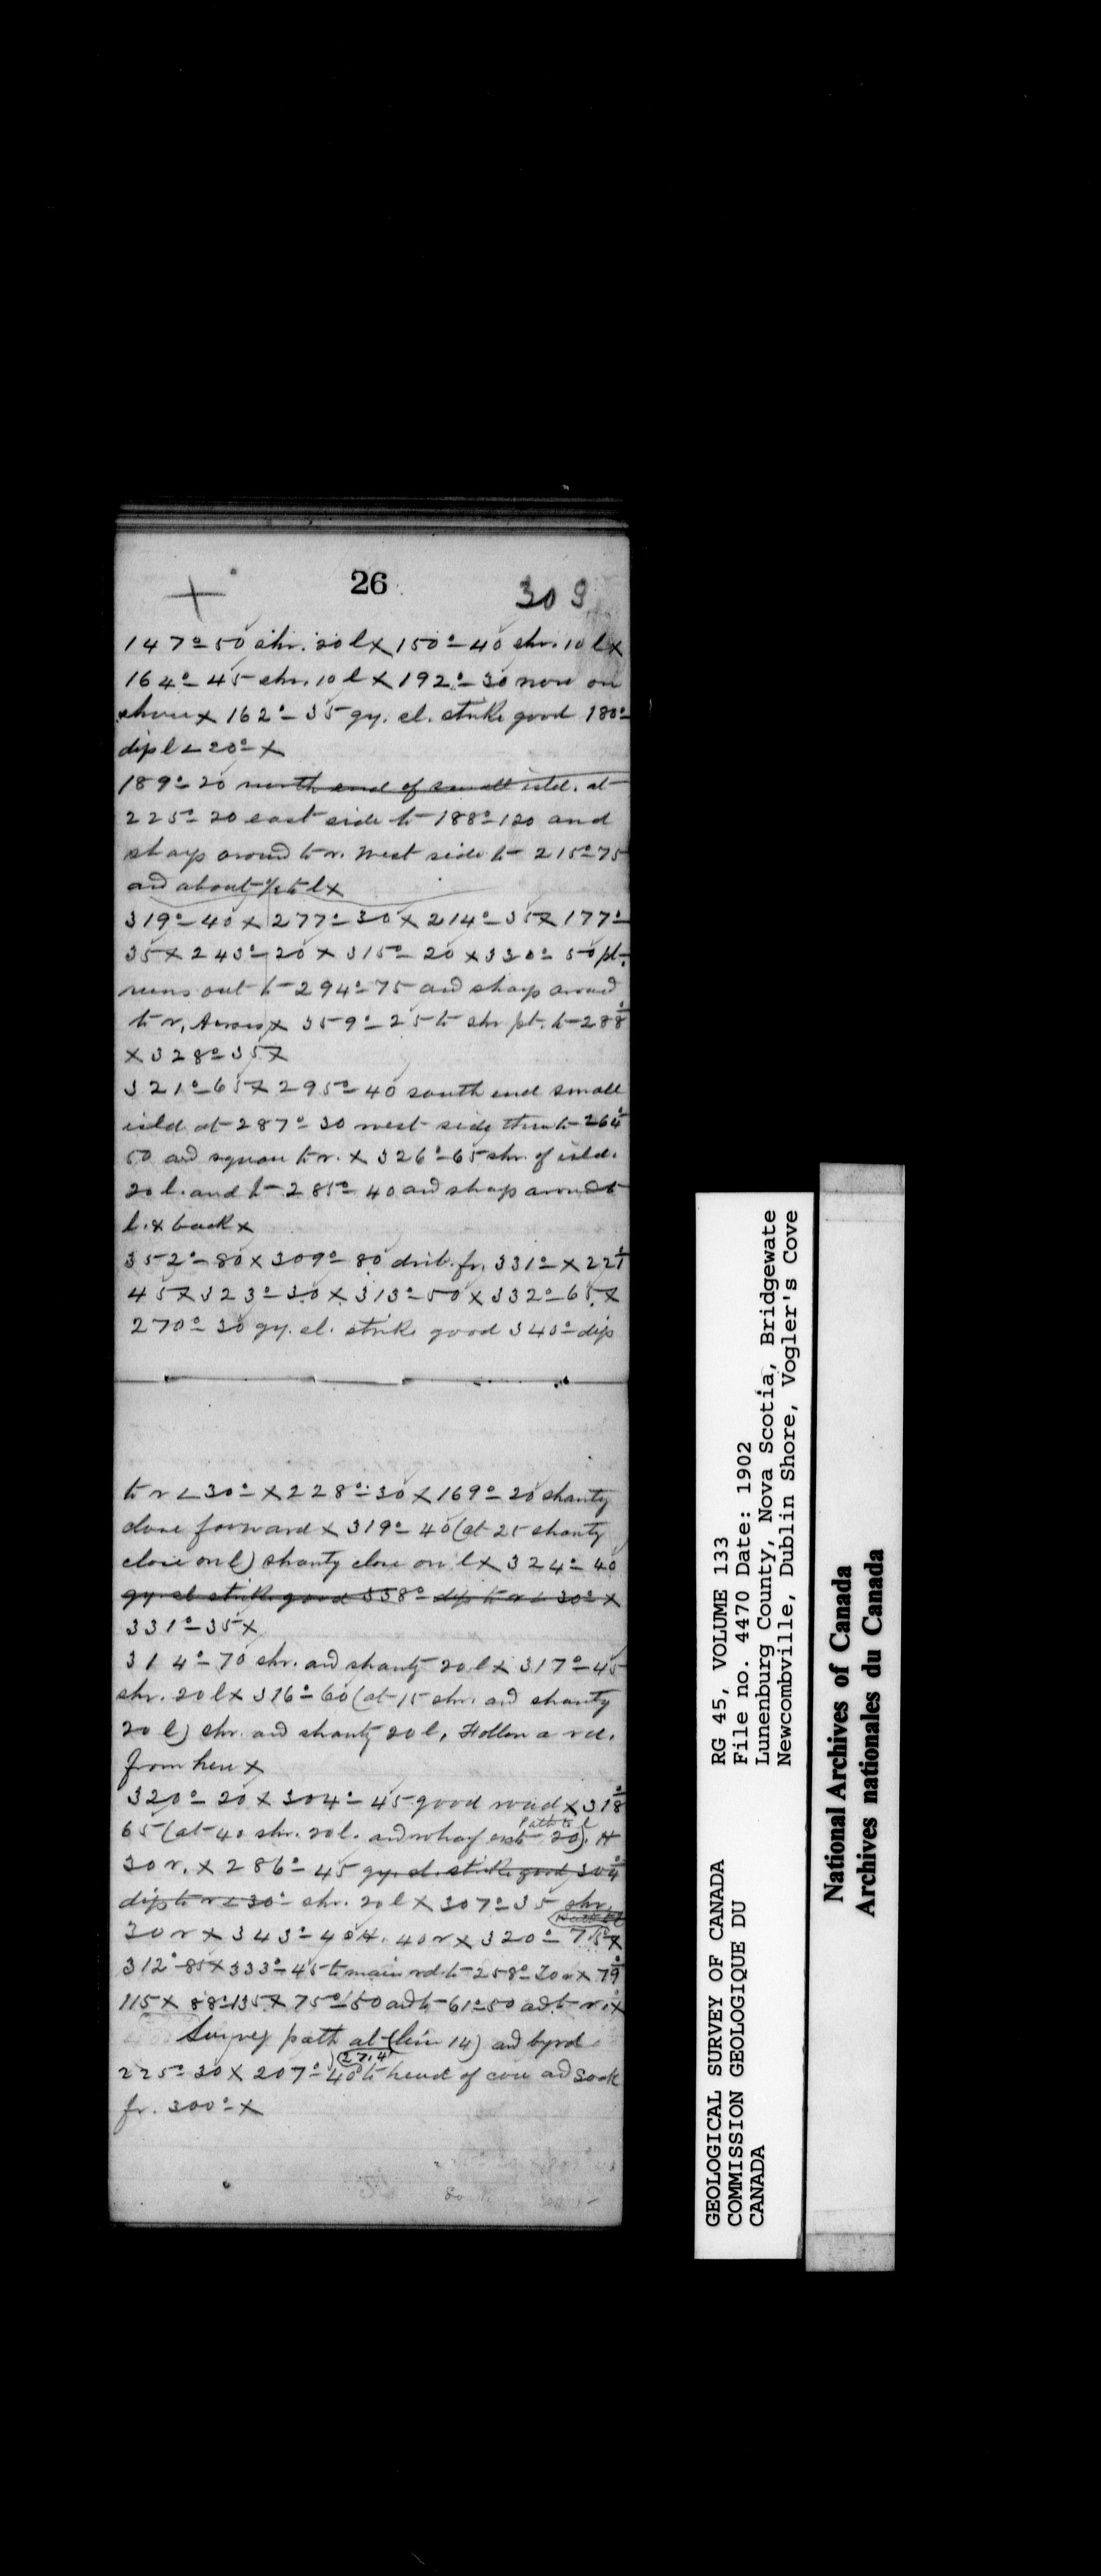 26
303
147º 50 shr. 20 l x 150º 40 shr. 10 l x
164º 45 shr. 10 l x 192º 30 now on
shore x 162º 35 gy. sl. strike good 180º
dip l ∠ 20º x
189º 20 north end of small isld. at
225º 20 east side to 188º 120 and
sharp around to r. West side to 215º 75
and about to l x
319º 40 x 277º 30 x 214º 35 x 177º
35 x 243º 20 x 315º 20 x 330º 50 pt.
runs out to 294º 75 and sharp around
to r, Across x 359º 25 to shr pt. to 288º
x 328º 35 x
321º 65 x 295º 40 south end small
isld at 287º 30 west side then to 264º
50 and square to r. x 326º 65 shr. of isld.
20 l. and to 285º 40 and sharp around to
l. & back x
352º 80 x 309º 80 drib. fr. 331º x 221º
45 x 323º 30 x 313º 50 x 332º 65 x
270º 30 gy. sl. strike good 340º dip
to r ∠ 30º x 228º 30 x 169º 20 shanty
close forward x 319º 40 (at 25 shanty
close on l) shanty close on l x 324º 40
gy. sl strike good 338º dip to r ∠ 30º x
331º 35 x
314º 70 shr. and shanty 20 l x 317º 45
shr. 20 l x 316º 60 (at 15 shr. and shanty
20 l) shr. and shanty 20 l, Follow a rd.
from here x
320º 20 x 304º 45 good road x 318º
Path to l
65 (at 40 shr. 20 l. and wharf out 20). H
30 r. x 286º 45 gy. sl. strike good 304º
dip to r ∠ 30º shr. 20 l x 307º 35 shr.
30 r x 343º 40 H. 40 r x 320º 75 x
312º 85 x 333º 45 to main rd to 258º 30 r x 79º
115 x 88º 135 x 75º 50 and to 61º 50 and to r. x
Survey path at (line 14) and by rd
27.4
225º 30 x 207º 40 to head of cove and book
fr. 300º x
GEOLOGICAL SURVEY OF CANADA
COMMISSION GEOLOGIQUE DU
CANADA
RG 45, VOLUME 133
File no. 4470 Date: 1902
Lunenburg County, Nova Scotia, Bridgewate
Newcombville, Dublin Shore, Vogler's Cove
National Archives of Canada
Archives nationales du Canada